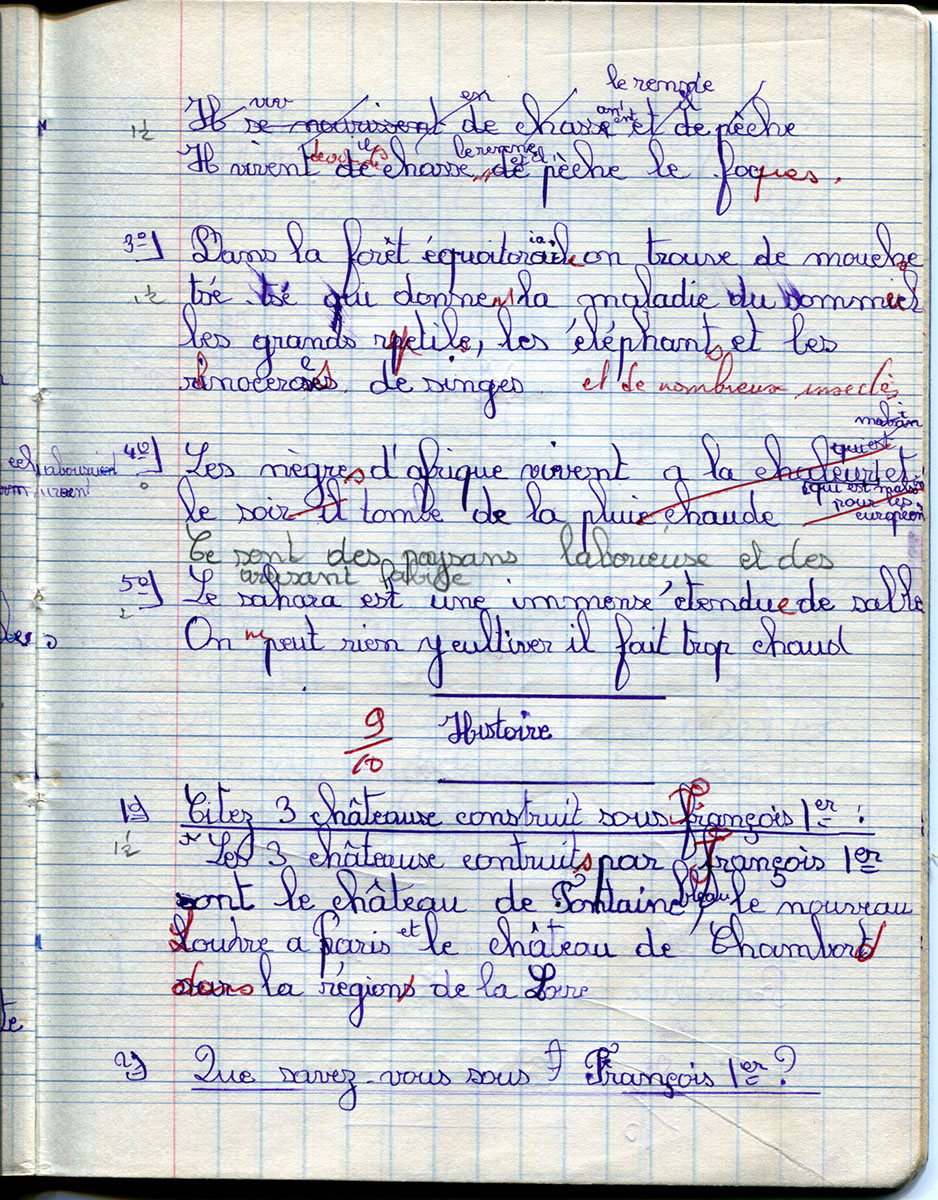 le renne de
viv en
Il se nourissent de chasse et de pêche
1½
Il vivent de chasse, de pêche le foques.
3°) Dans la forêt équatoriale on trouve de mouche
1½ tsé tsé qui donnent la maladie du sommeil
les grands reptiles, les éléphants et les
rinoceros de singes et de nombreux insectes
malsain
qui est
4°) Les nègres d'afrique vivent a la chaleur et
0 le soir il tombe de la pluie chaude
qui est malsin
pour les
européen
Ce sont des paysans laborieuse et des
artisant
5°) Le sahara est une immense étendue de sable
2 On ne peut rien y cultiver il fait trop chaud
9/10 Histoire
1°) Citez 3 châteause construit sous françois 1er :
1½ Les 3 châteause contruits par françois 1er
sont le château de Fontainebleau, le nouveau
Louvre a Paris et le château de Chambord
dans la régions de la Loire
2°) Que savez-vous sous F François 1er ?